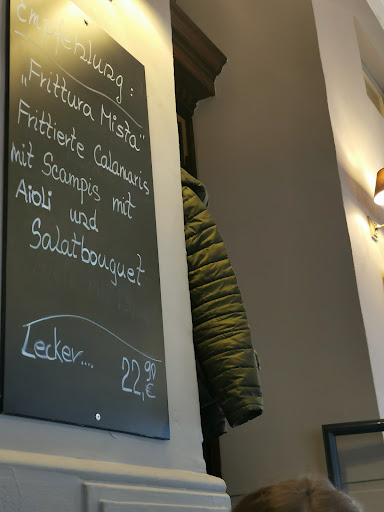 Empfehlung:
„Frittura Mista"
Frittierte Calamaris
mit Scampis mit
Aioli und
Salatbouquet
Lecker.... 22,90 €